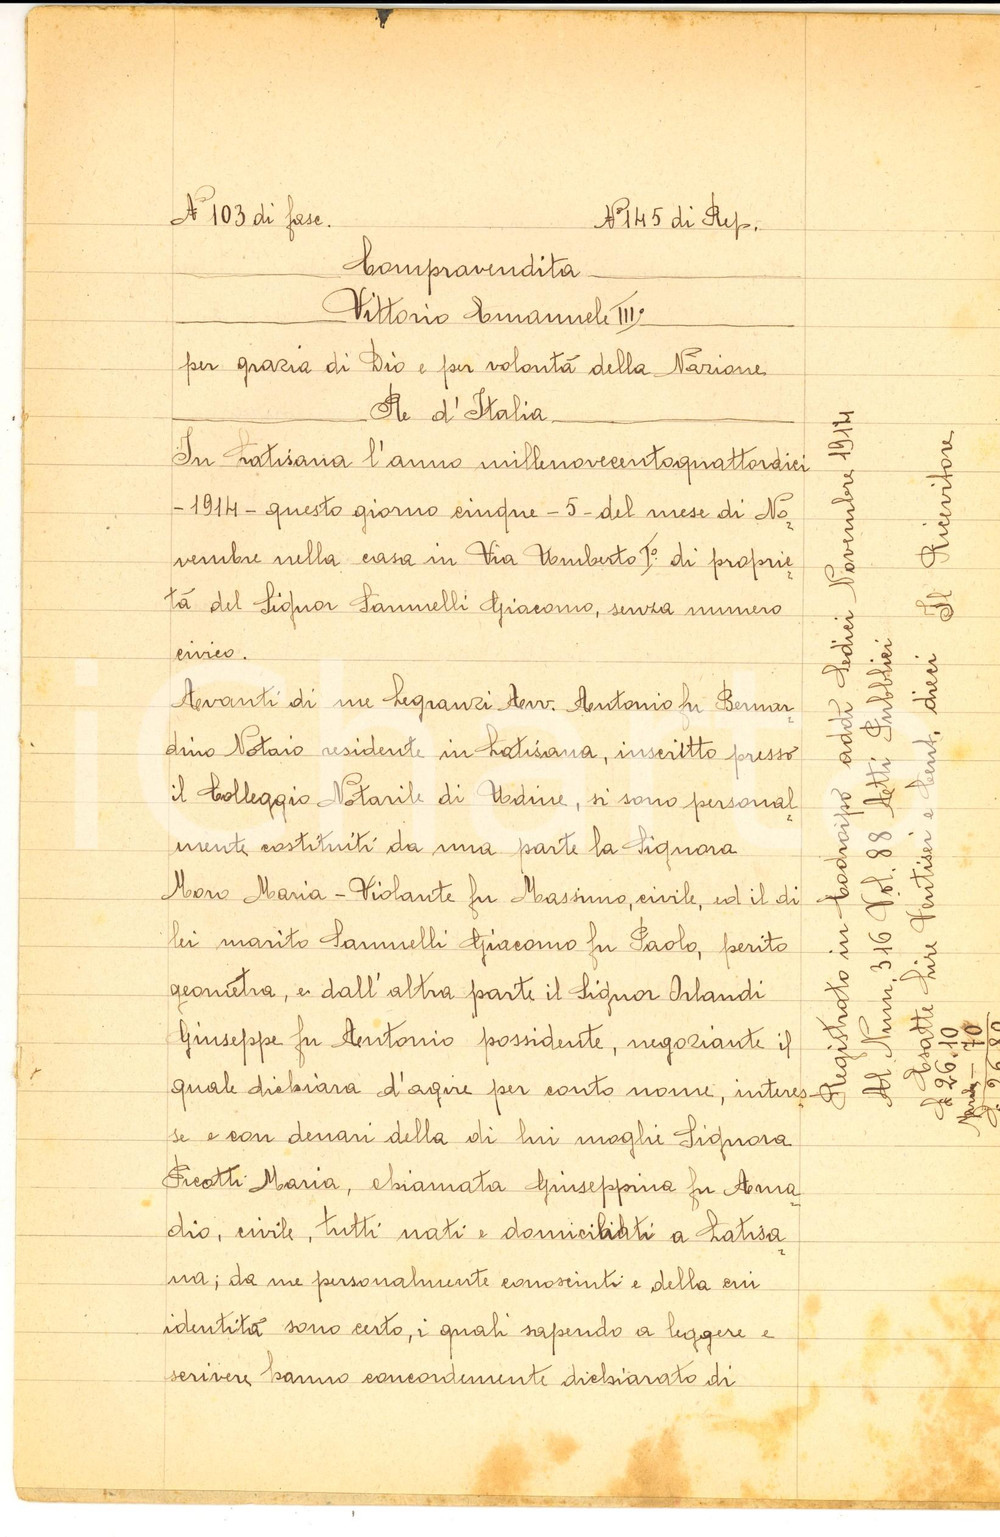 N° 103 di fasc. N° 145 di Rep.
Compravendita
Vittorio Emanuele III°
per grazia di Dio e per volontà della Nazione
Re d'Italia
In Latisana l'anno millenovecentoquattordici
- 1914 - questo giorno cinque - 5 - del mese di No=
vembre nella casa in Via Umberto I° di proprie=
tà del Signor Sannelli Giacomo, senza numero
civico.
Avanti di me Legranzi Avv. Antonio fu Bernar=
dino Notaio residente in Latisana, inscritto presso
il Colleggio Notarile di Udine, si sono personal=
mente costituiti da una parte la Signora
Moro Maria - Violante fu Massimo, civile, ed il di
lei marito Sannelli Giacomo fu Paolo, perito
geometra, e dall'altra parte il Signor Orlandi
Giuseppe fu Antonio possidente, negoziante il
quale dichiara d'agire per conto nome, interes-
se e con denari della di lui moglie Signora
Picotti Maria, chiamata Giuseppina fu Ama=
dio, civile, tutti nati e domiciliati a Latisa=
na; da me personalmente conosciuti e della cui
identità sono certo, i quali sapendo a leggere e
scrivere hanno concordemente dichiarato di
Registrato in Codroipo addì Sedici Novembre 1914
Al Num. 316 Vol. 88 Atti Pubblici
Esatte Lire Ventisei e Cent. dieci Il Ricevitore
£ 26.10
70
£ 26.80